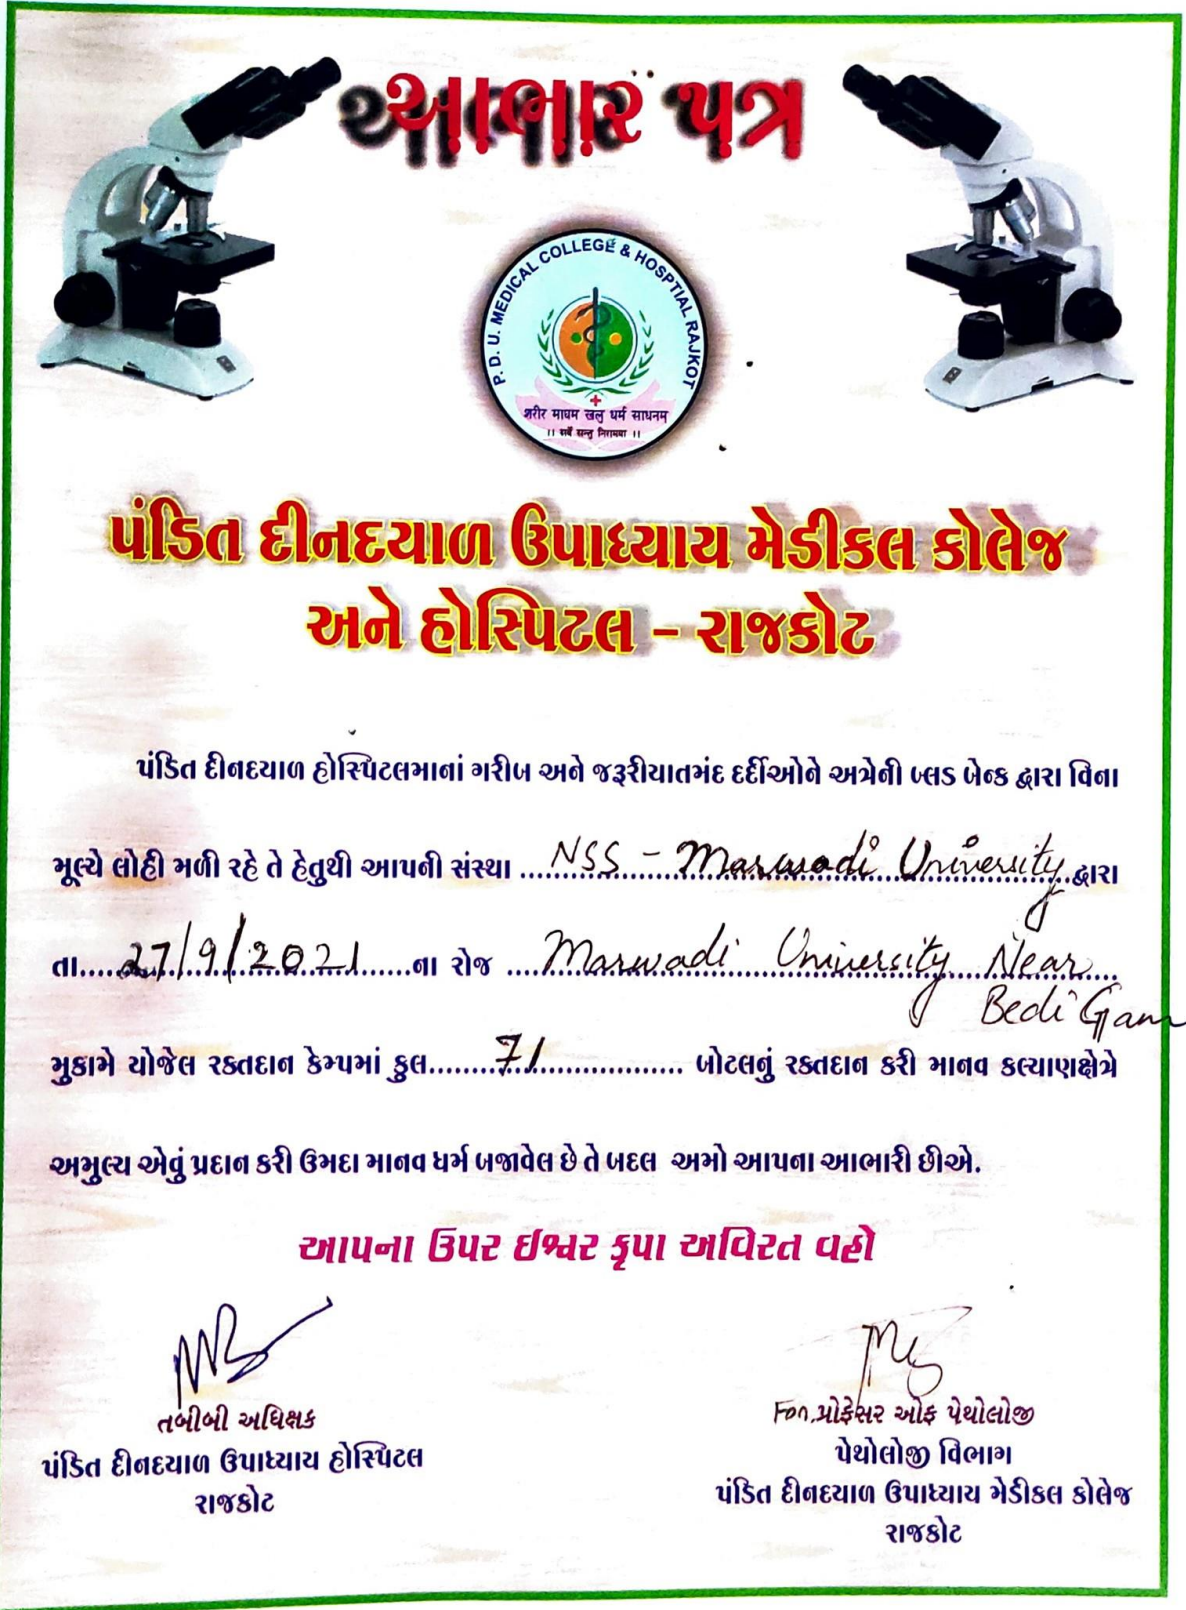 આભાર પત્ર
P. D. U. MEDICAL COLLEGE & HOSPTIAL RAJKOT
शरीर माधम खलु धर्म साधनम
।। सर्वे सन्तु निरामया ।।
પંડિત દીનદયાળ ઉપાધ્યાય મેડીકલ કોલેજ
અને હોસ્પિટલ - રાજકોટ
પંડિત દીનદયાળ હોસ્પિટલમાનાં ગરીબ અને જરૂરીયાતમંદ દર્દીઓને અત્રેની બ્લડ બેન્ક દ્વારા વિના
મૂલ્યે લોહી મળી રહે તે હેતુથી આપની સંસ્થા NSS - Marwadi University દ્વારા
તા. 27/9/2021 ના રોજ Marwadi University Near
Bedi Gam
મુકામે યોજેલ રક્તદાન કેમ્પમાં કુલ 71 બોટલનું રક્તદાન કરી માનવ કલ્યાણક્ષેત્રે
અમુલ્ય એવું પ્રદાન કરી ઉમદા માનવ ધર્મ બજાવેલ છે તે બદલ અમો આપના આભારી છીએ.
આપના ઉપર ઈશ્વર કૃપા અવિરત વહો
તબીબી અધિક્ષક
પંડિત દીનદયાળ ઉપાધ્યાય હોસ્પિટલ
રાજકોટ
For,પ્રોફેસર ઓફ પેથોલોજી
પેથોલોજી વિભાગ
પંડિત દીનદયાળ ઉપાધ્યાય મેડીકલ કોલેજ
રાજકોટ